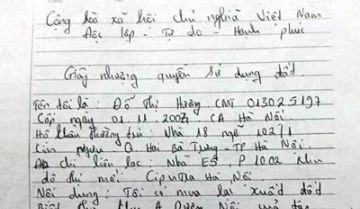 Cộng hòa xã hội chủ nghĩa Việt Nam
Độc lập - Tự do - Hạnh phúc
Giấy nhượng quyền sử dụng đất
Tên tôi là: Đỗ Thị Hương CMT 013025197
Cấp ngày 01.11.2007 CA Hà Nội
Hộ khẩu thường trú: Nhà 18 ngõ 102/1
Q Hai Bà Trưng - TP Hà Nội
Địa chỉ liên lạc: Nhà E5, P 1002 khu
đô thị mới Ciputra Hà Nội
Nội dung: Tôi có mua lại xuất đất